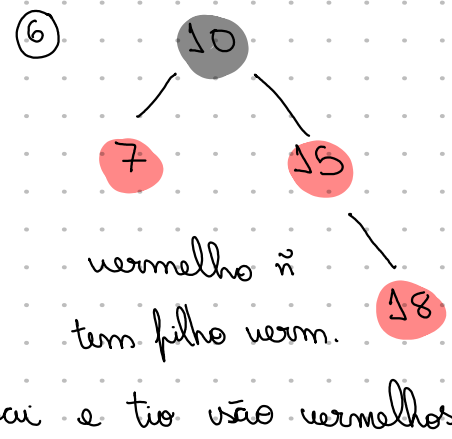 6
10
7 15
vermelho ñ
18
tem filho verm.
ai e tio são vermelhos